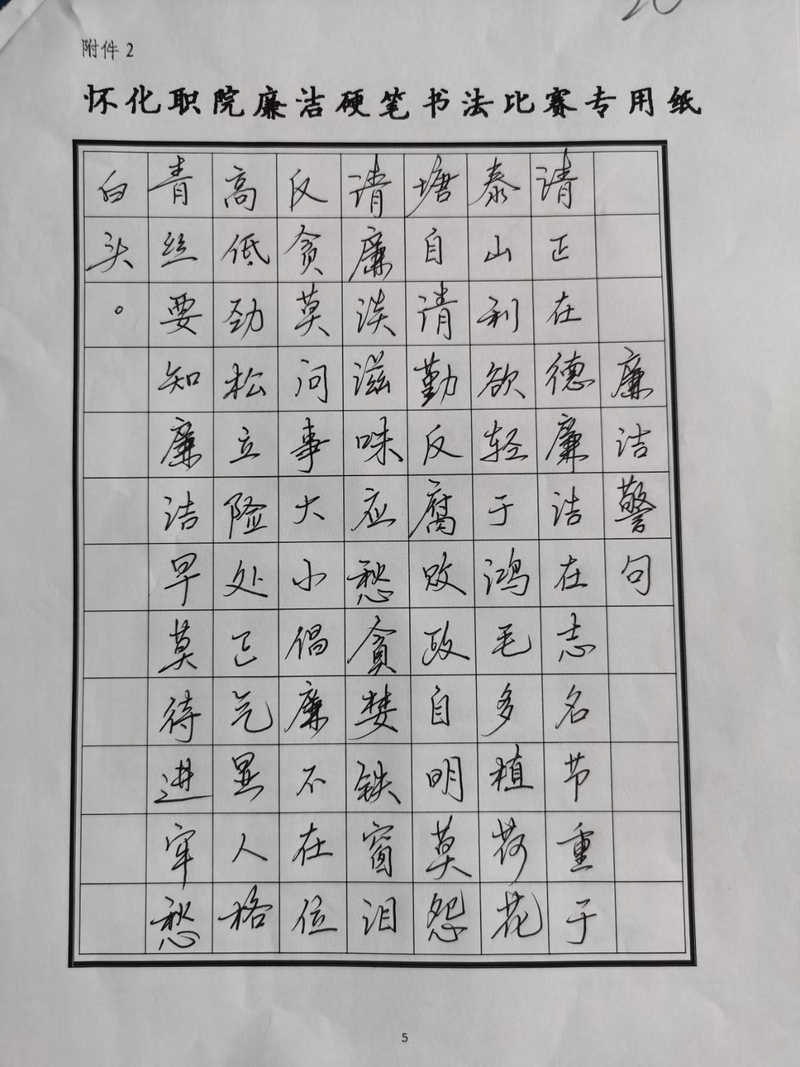 附件2
怀化职院廉洁硬笔书法比赛专用纸
廉洁警句
清正在德廉洁在志名节重于
泰山利欲轻于鸿毛多植荷花
塘自清勤反腐败政自明莫怨
清廉淡滋味应愁贪婪铁窗泪
反贪莫问事大小倡廉不在位
高低劲松立险处正气显人格
青丝要知廉洁早莫待进牢愁
白头。
5